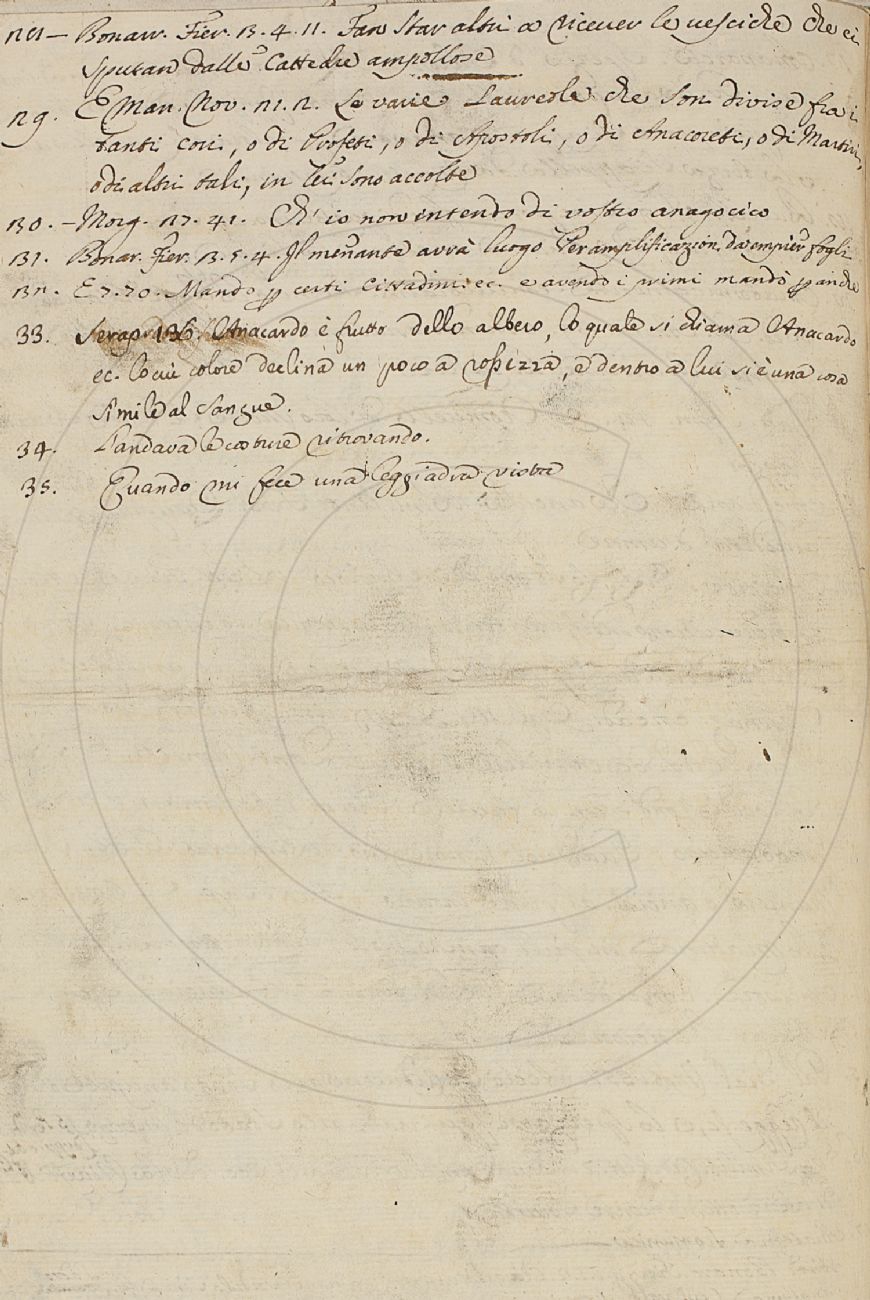 Bonarr. Fier. 3. 4. 11. Fan Star altri a ricever le vesciche che ci
Sputan dalle Cattedre ampollose
29. E Man. Nov. 21. 2. Le varie Laureole che Son divise fra i
tanti cori, o di Profeti, o di Apostoli, o di Anacoreti, o di Martiri,
o di altri tali, in lui Sono accolte
30. – Morg. 27. 41. Ch' io non intendo di vostro anagogico
31. Bonar. Fier. 3. 5. 4. Il menante avrà luogo Per amplificazion da empier fogli
E 7. 70. Mandò certi Cittadini ec. e avendo i primi mandò anche
33. Serap. 136. L'Anacardo è frutto dello albero, lo quale si chiama l'Anacardo
ec. lo cui colore declina un poco a rossezza, e dentro a lui si è una cosa
Simile al Sangue.
34. L'andava le costure ritrovando.
35. Quando mi fece una leggiadra vista